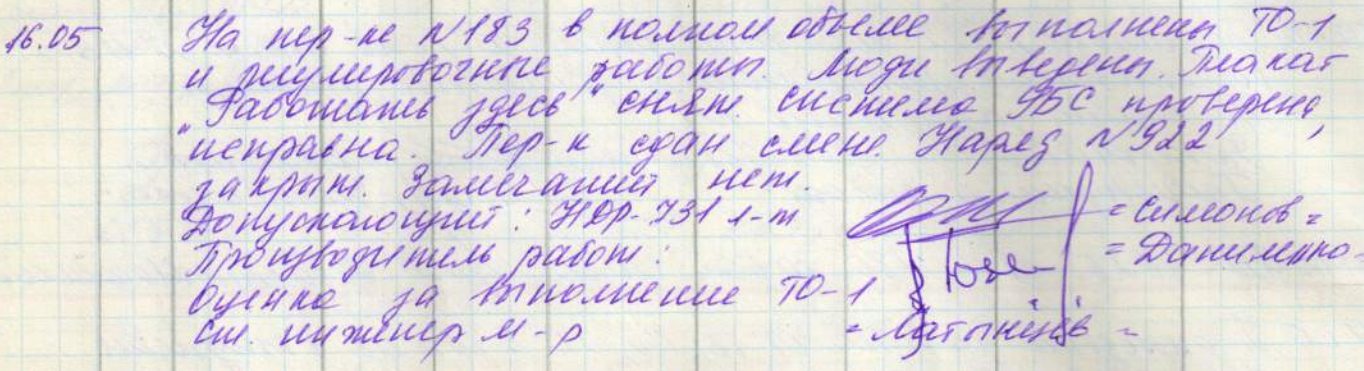 16.05 На пер-ке №183 в полном объеме выполнены ТО-1
и регулировочные работы. Люди выведены. Плакат
"Работать здесь" снят. Система УБС проверена,
исправна. Пер-к сдан смене. Наряд №922
закрыт. Замечаний нет.
Допускающий: НДР-731 л-т =Симонов=
Производитель работ: =Даниленко=
Оценка за выполнение ТО-1
Ст. инженер м-р =Латынцев=